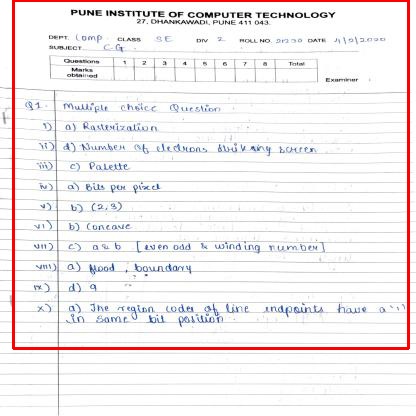 PUNE INSTITUTE OF COMPUTER TECHNOLOGY
27, DHANKAWADI, PUNE 411 043.
DEPT. Comp. CLASS SE DIV 2 ROLL NO. 21230 DATE 4/9/2020
SUBJECT C.G.
Questions 1 2 3 4 5 6 7 8 Total
Marks obtained
Examiner
Q1. Multiple choice Question
i) a) Rasterization
ii) d) Number of electrons striking screen
iii) c) Palette
iv) a) Bits per pixel
v) b) (2,3)
vi) b) Concave
vii) c) a & b [even odd & winding number]
viii) a) flood, boundary
ix) d) 9
x) a) The region codes of line endpoints have a '1'
in same bit position